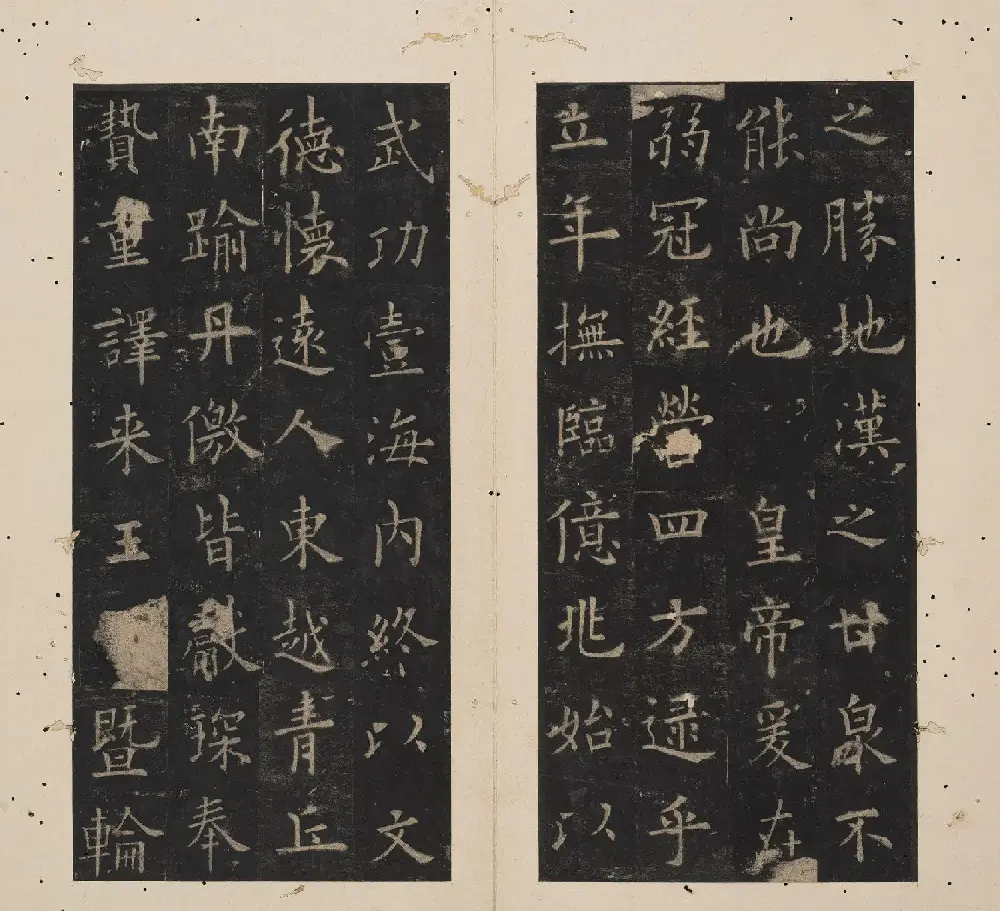 之勝地漢之甘泉不
能尚也皇帝爰在
弱冠經營四方逮乎
立年撫臨億兆始以
武功壹海內終以文
德懷遠人東越青丘
南踰丹儌皆獻琛奉
贄重譯来王暨輪